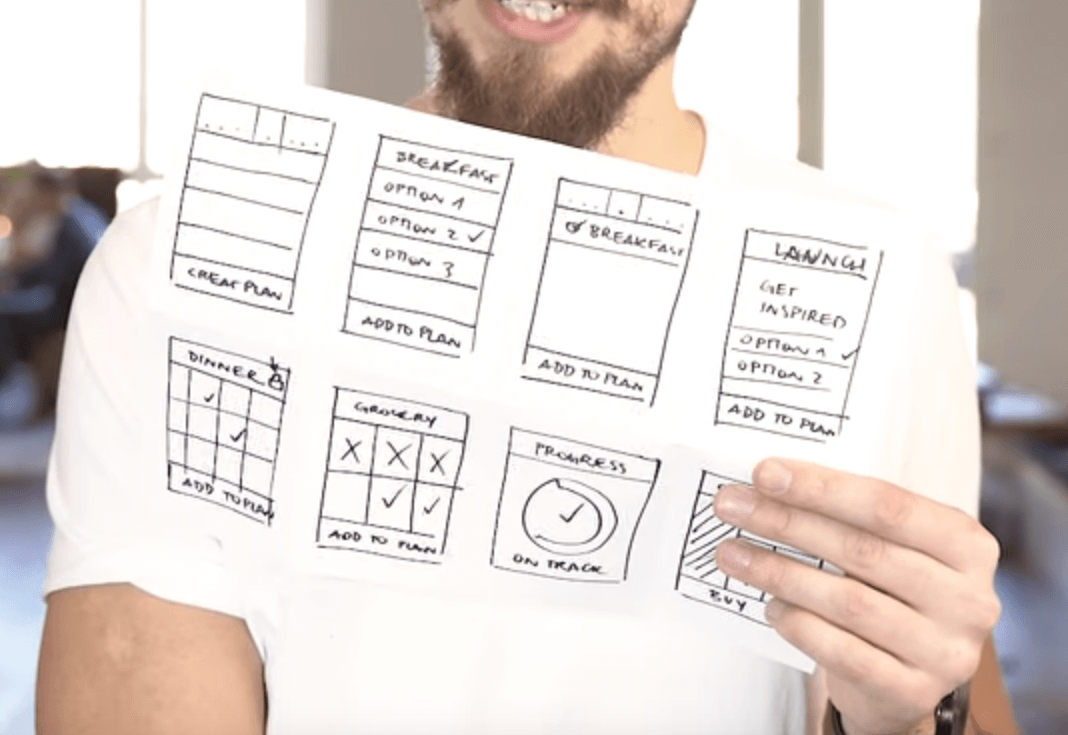 CREAT PLAN
BREAKFAST
OPTION 1
OPTION 2 ✓
OPTION 3
ADD TO PLAN
BREAKFAST
ADD TO PLAN
LAUNCH
GET
INSPIRED
OPTION 1 ✓
OPTION 2
ADD TO PLAN
DINNER
ADD TO PLAN
GROCERY
X X X
ADD TO PLAN
PROGRESS
ON TRACK
BUY